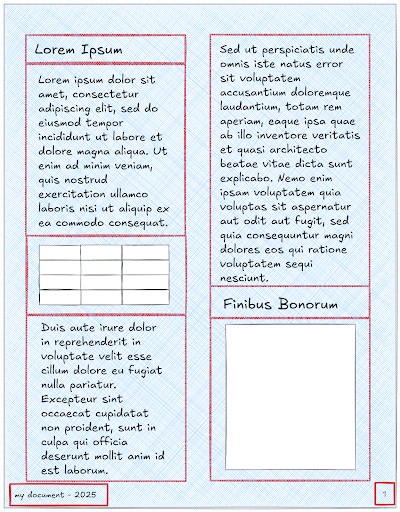 Lorem Ipsum
Lorem ipsum dolor sit
amet, consectetur
adipiscing elit, sed do
eiusmod tempor
incididunt ut labore et
dolore magna aliqua. Ut
enim ad minim veniam,
quis nostrud
exercitation ullamco
laboris nisi ut aliquip ex
ea commodo consequat.
Duis aute irure dolor
in reprehenderit in
voluptate velit esse
cillum dolore eu fugiat
nulla pariatur.
Excepteur sint
occaecat cupidatat
non proident, sunt in
culpa qui officia
deserunt mollit anim id
est laborum.
Sed ut perspiciatis unde
omnis iste natus error
sit voluptatem
accusantium doloremque
laudantium, totam rem
aperiam, eaque ipsa quae
ab illo inventore veritatis
et quasi architecto
beatae vitae dicta sunt
explicabo. Nemo enim
ipsam voluptatem quia
voluptas sit aspernatur
aut odit aut fugit, sed
quia consequuntur magni
dolores eos qui ratione
voluptatem sequi
nesciunt.
Finibus Bonorum
my document - 2025
1